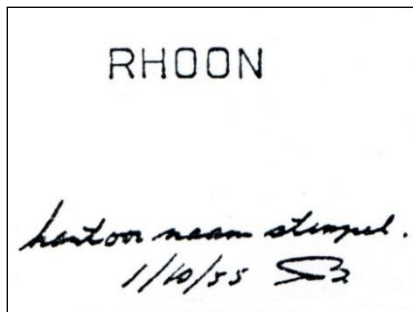 RHOON
kantoor naam stempel.
1/10/55